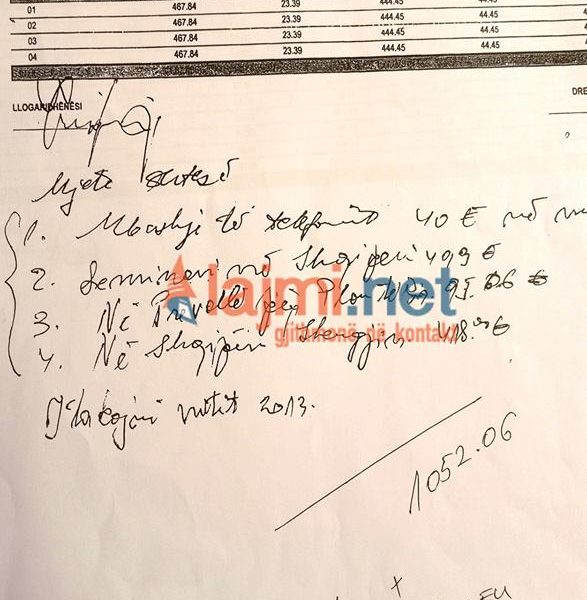 01 467.84 23.39 444.45 44.45
02 467.84 23.39 444.45 44.45
03 467.84 23.39 444.45 44.45
04 467.84 23.39 444.45 44.45
LLOGARIDHËNËSI
DRE
Mjete
1. Mbushje të telefonit 40 € në
2. Seminari në Shqipëri 499 €
3. Në Prevallë për Plan
4. Në Shqipëri / Shengjin 418.
vitit 2013.
1052.06
lajmi.net
gjithmonë në kontakt
x EU